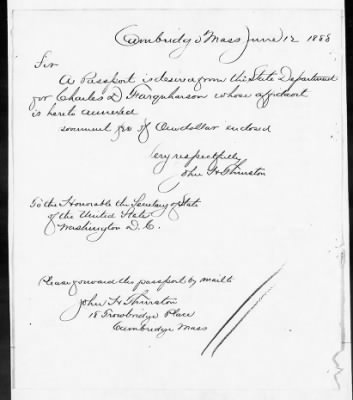 Cambridge Mass June 12 1888
Sir
A Passport is desired from the State Department
for Charles D Farquharson whose affidavit
is hereto annexed
fee of One dollar enclosed
Very respectfully
John H Thurston
To the Honorable the Secretary of State
of the United State
Washington D.C.
Please forward the passport by mail to
John H Thurston
18 Trowbridge Place
Cambridge Mass